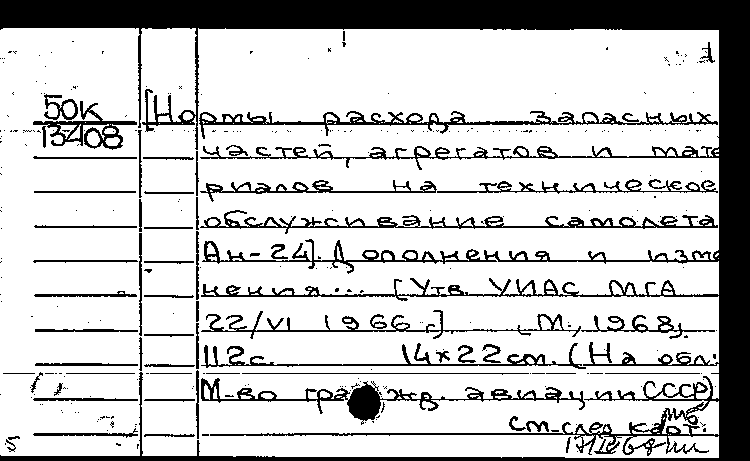 1
50К
13408
[Нормы расхода запасных
частей, агрегатов и мате
риалов на техническое
обслуживание самолета
Ан-24]. Дополнения и изме
нения... [Утв. УИАС МГА
22/VI 1966 г.]. М., 1968,
112с. 14×22см. (На обл:
М-во гражд. авиации СССР)
См. след карт.
5